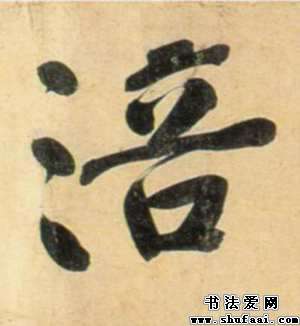 涪
书法爱网
www.shufaai.com